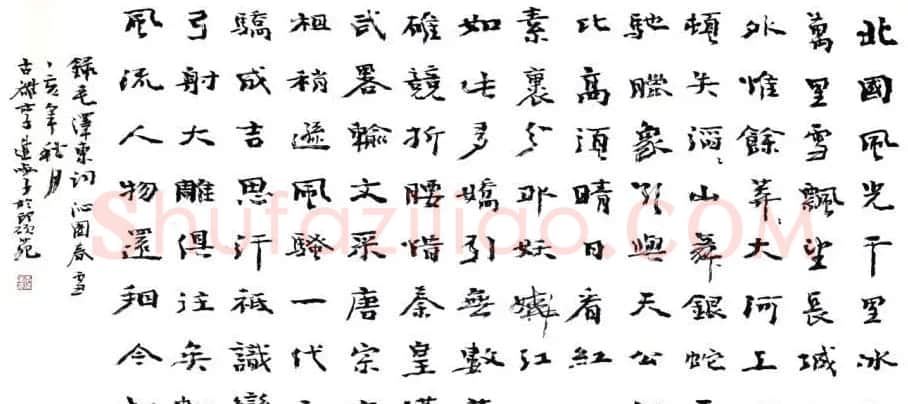 北國風光千里冰
萬里雪飄望長城
外惟餘莽〻大河上
頓失滔〻山舞銀蛇
馳臘象欲與天公
比高須晴日看紅
素裹分外妖嬈江
如此多嬌引無數
雄競折腰惜秦皇
武畧輸文采唐宗
祖稍遜風騷一代
驕成吉思汗祗識
弓射大雕俱往矣
風流人物還看今
錄毛澤東詞沁園春雪
亥年秋月
Shufaziliao.COM